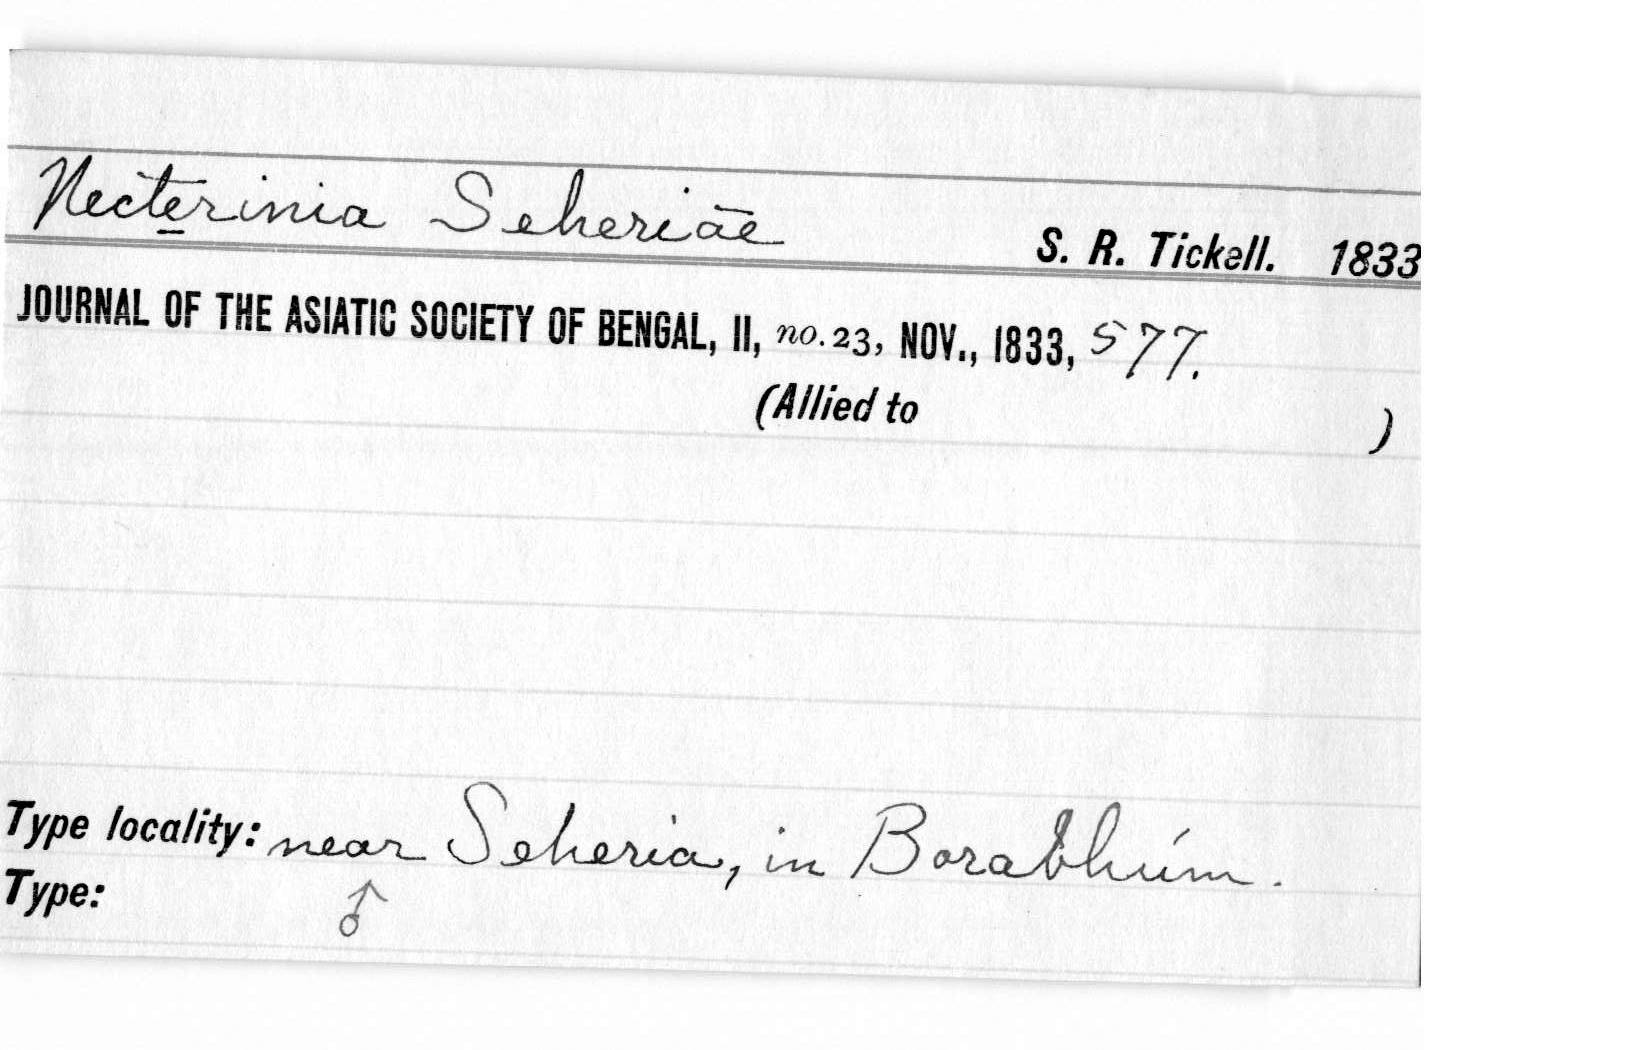 Necterinia Seheriāe
S. R. Tickell. 1833
JOURNAL OF THE ASIATIC SOCIETY OF BENGAL, II, no. 23, NOV., 1833, 577.
(Allied to )
Type locality: near Seheria, in Borabhúm.
Type: ♂